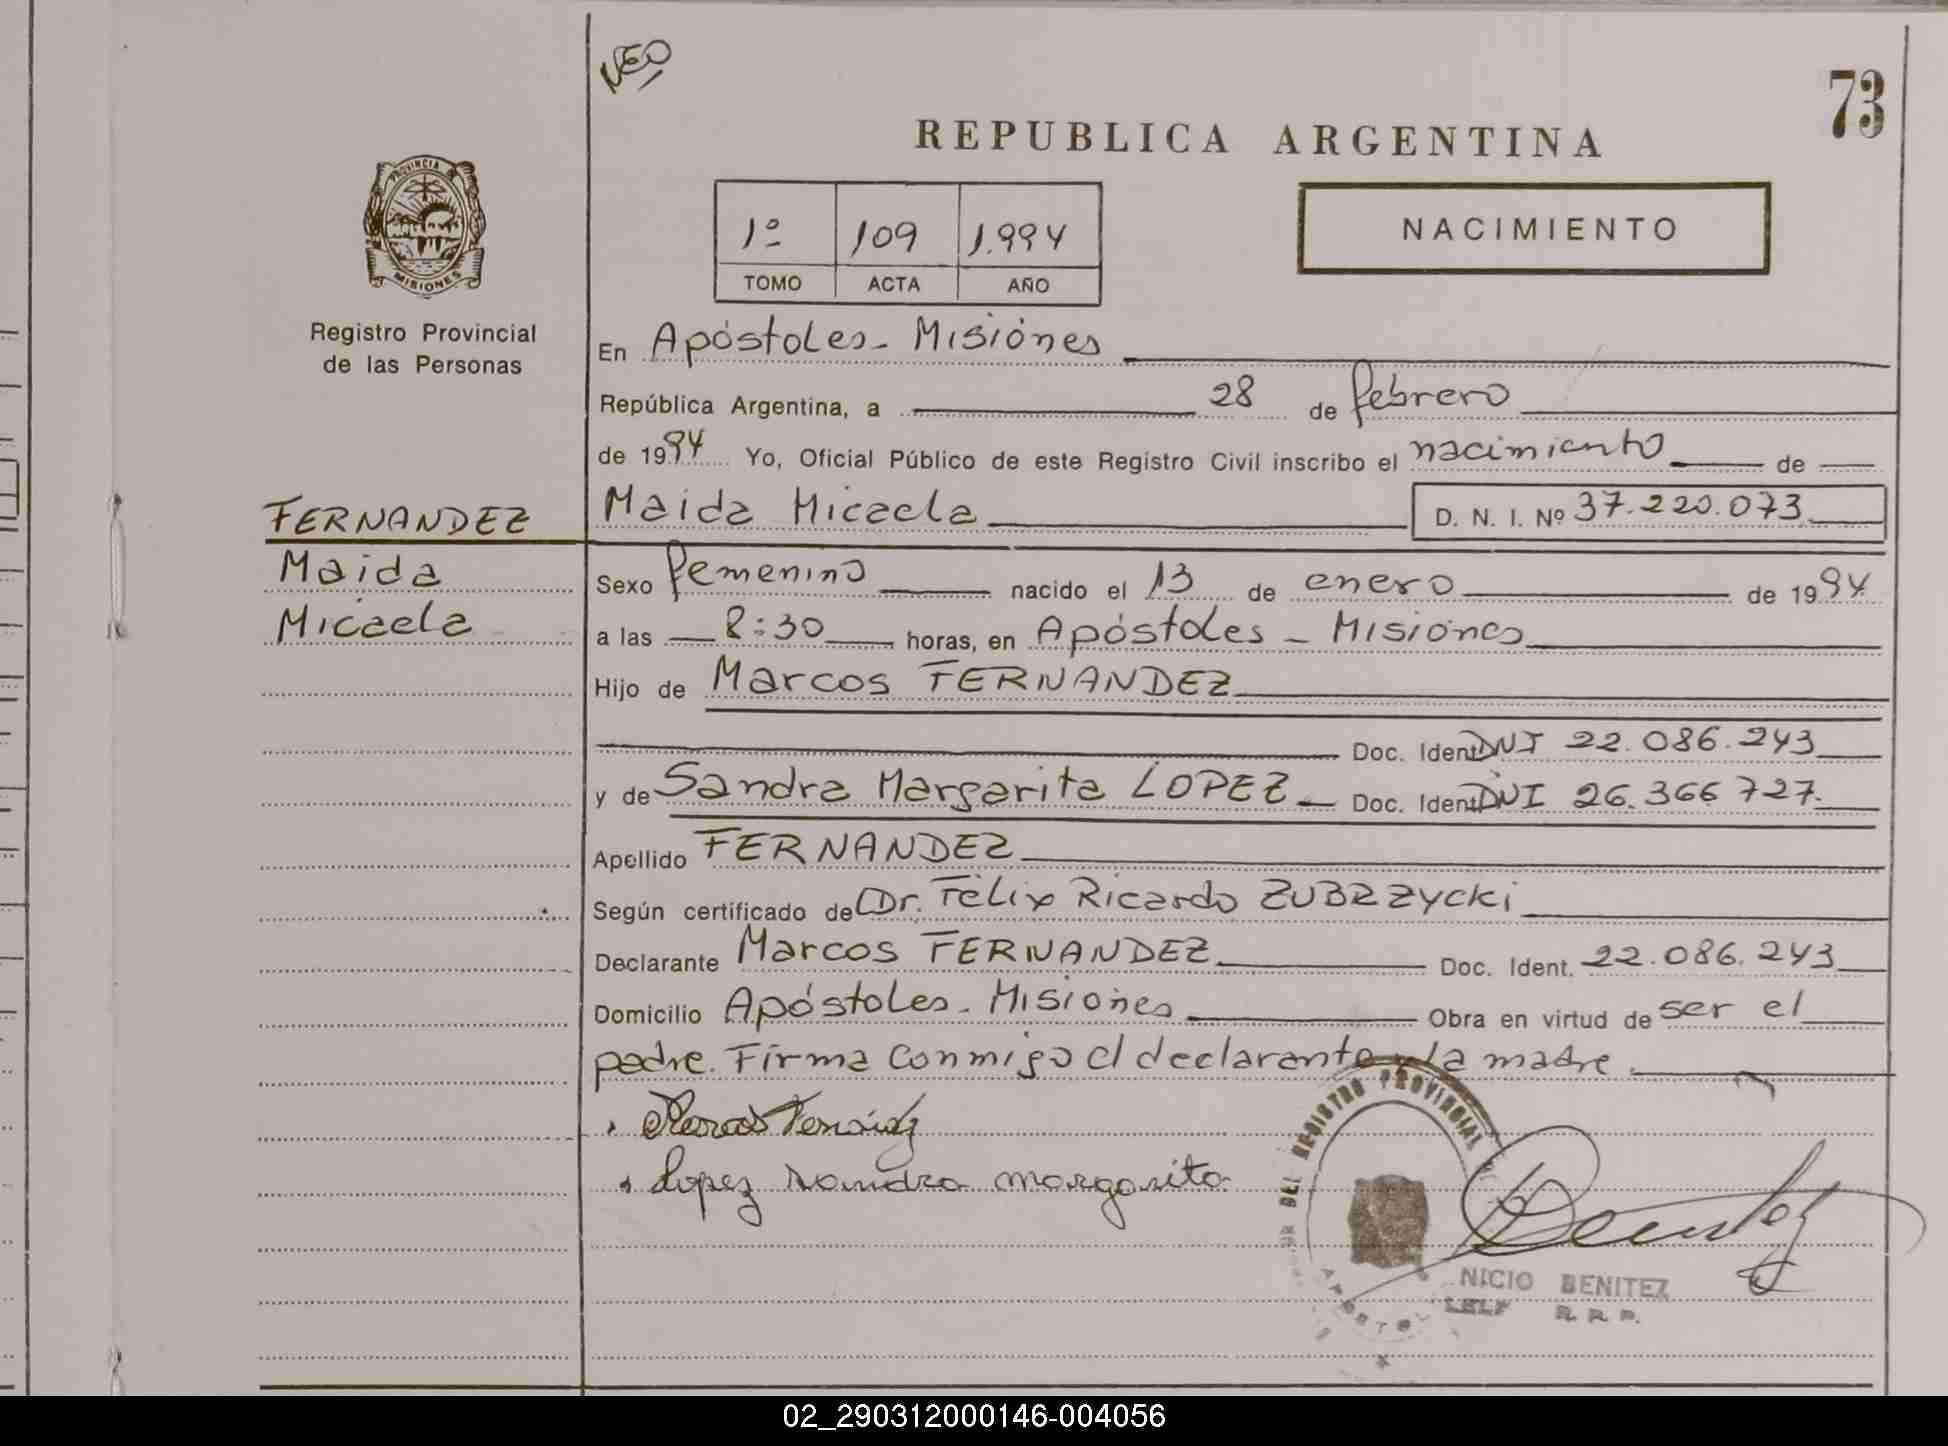 NEO
73
REPUBLICA ARGENTINA
PROVINCIA
MISIONES
Registro Provincial
de las Personas
1º 109 1.994
TOMO ACTA AÑO
NACIMIENTO
En Apóstoles - Misiones
República Argentina, a 28 de febrero
de 1994 Yo, Oficial Público de este Registro Civil inscribo el nacimiento de
FERNANDEZ
Maida
Micaela
Maida Micaela D. N. I. Nº 37.220.073
Sexo femenino nacido el 13 de enero de 1994
a las 8:30 horas, en Apóstoles - Misiones
Hijo de Marcos FERNANDEZ
Doc. Ident. DNI 22.086.243
y de Sandra Margarita LOPEZ Doc. Ident. DNI 26.366.727
Apellido FERNANDEZ
Según certificado de Dr. Félix Ricardo ZUBRZYCKI
Declarante Marcos FERNANDEZ Doc. Ident. 22.086.243
Domicilio Apóstoles - Misiones Obra en virtud de ser el
padre. Firma conmigo el declarante y la madre
Marcos Fernández
Lopez Sandra margarita
DEL REGISTRO PROVINCIAL
NICIO BENITEZ
R. R. P.
02_290312000146-004056